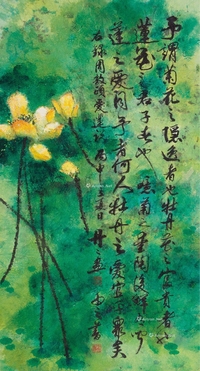 予謂菊花之隱逸者也牡丹花之富貴者也
蓮花之君子者也噫菊之愛陶後鮮有聞
蓮之愛同予者何人牡丹之愛宜乎眾矣
右錄周敦頤愛蓮說 丙申